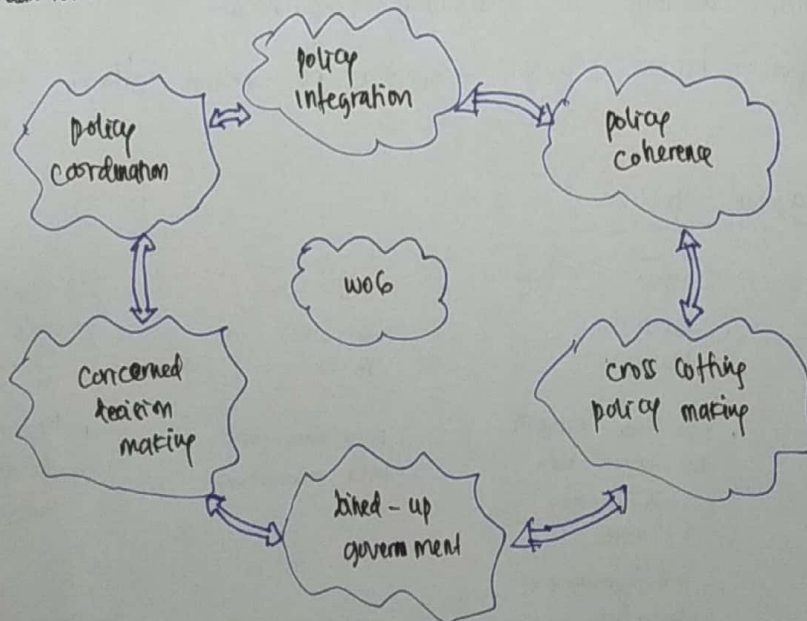 policy
integration
policy
coordination
policy
coherence
WOG
concerned
decision
making
cross cotting
policy making
Joined-up
government